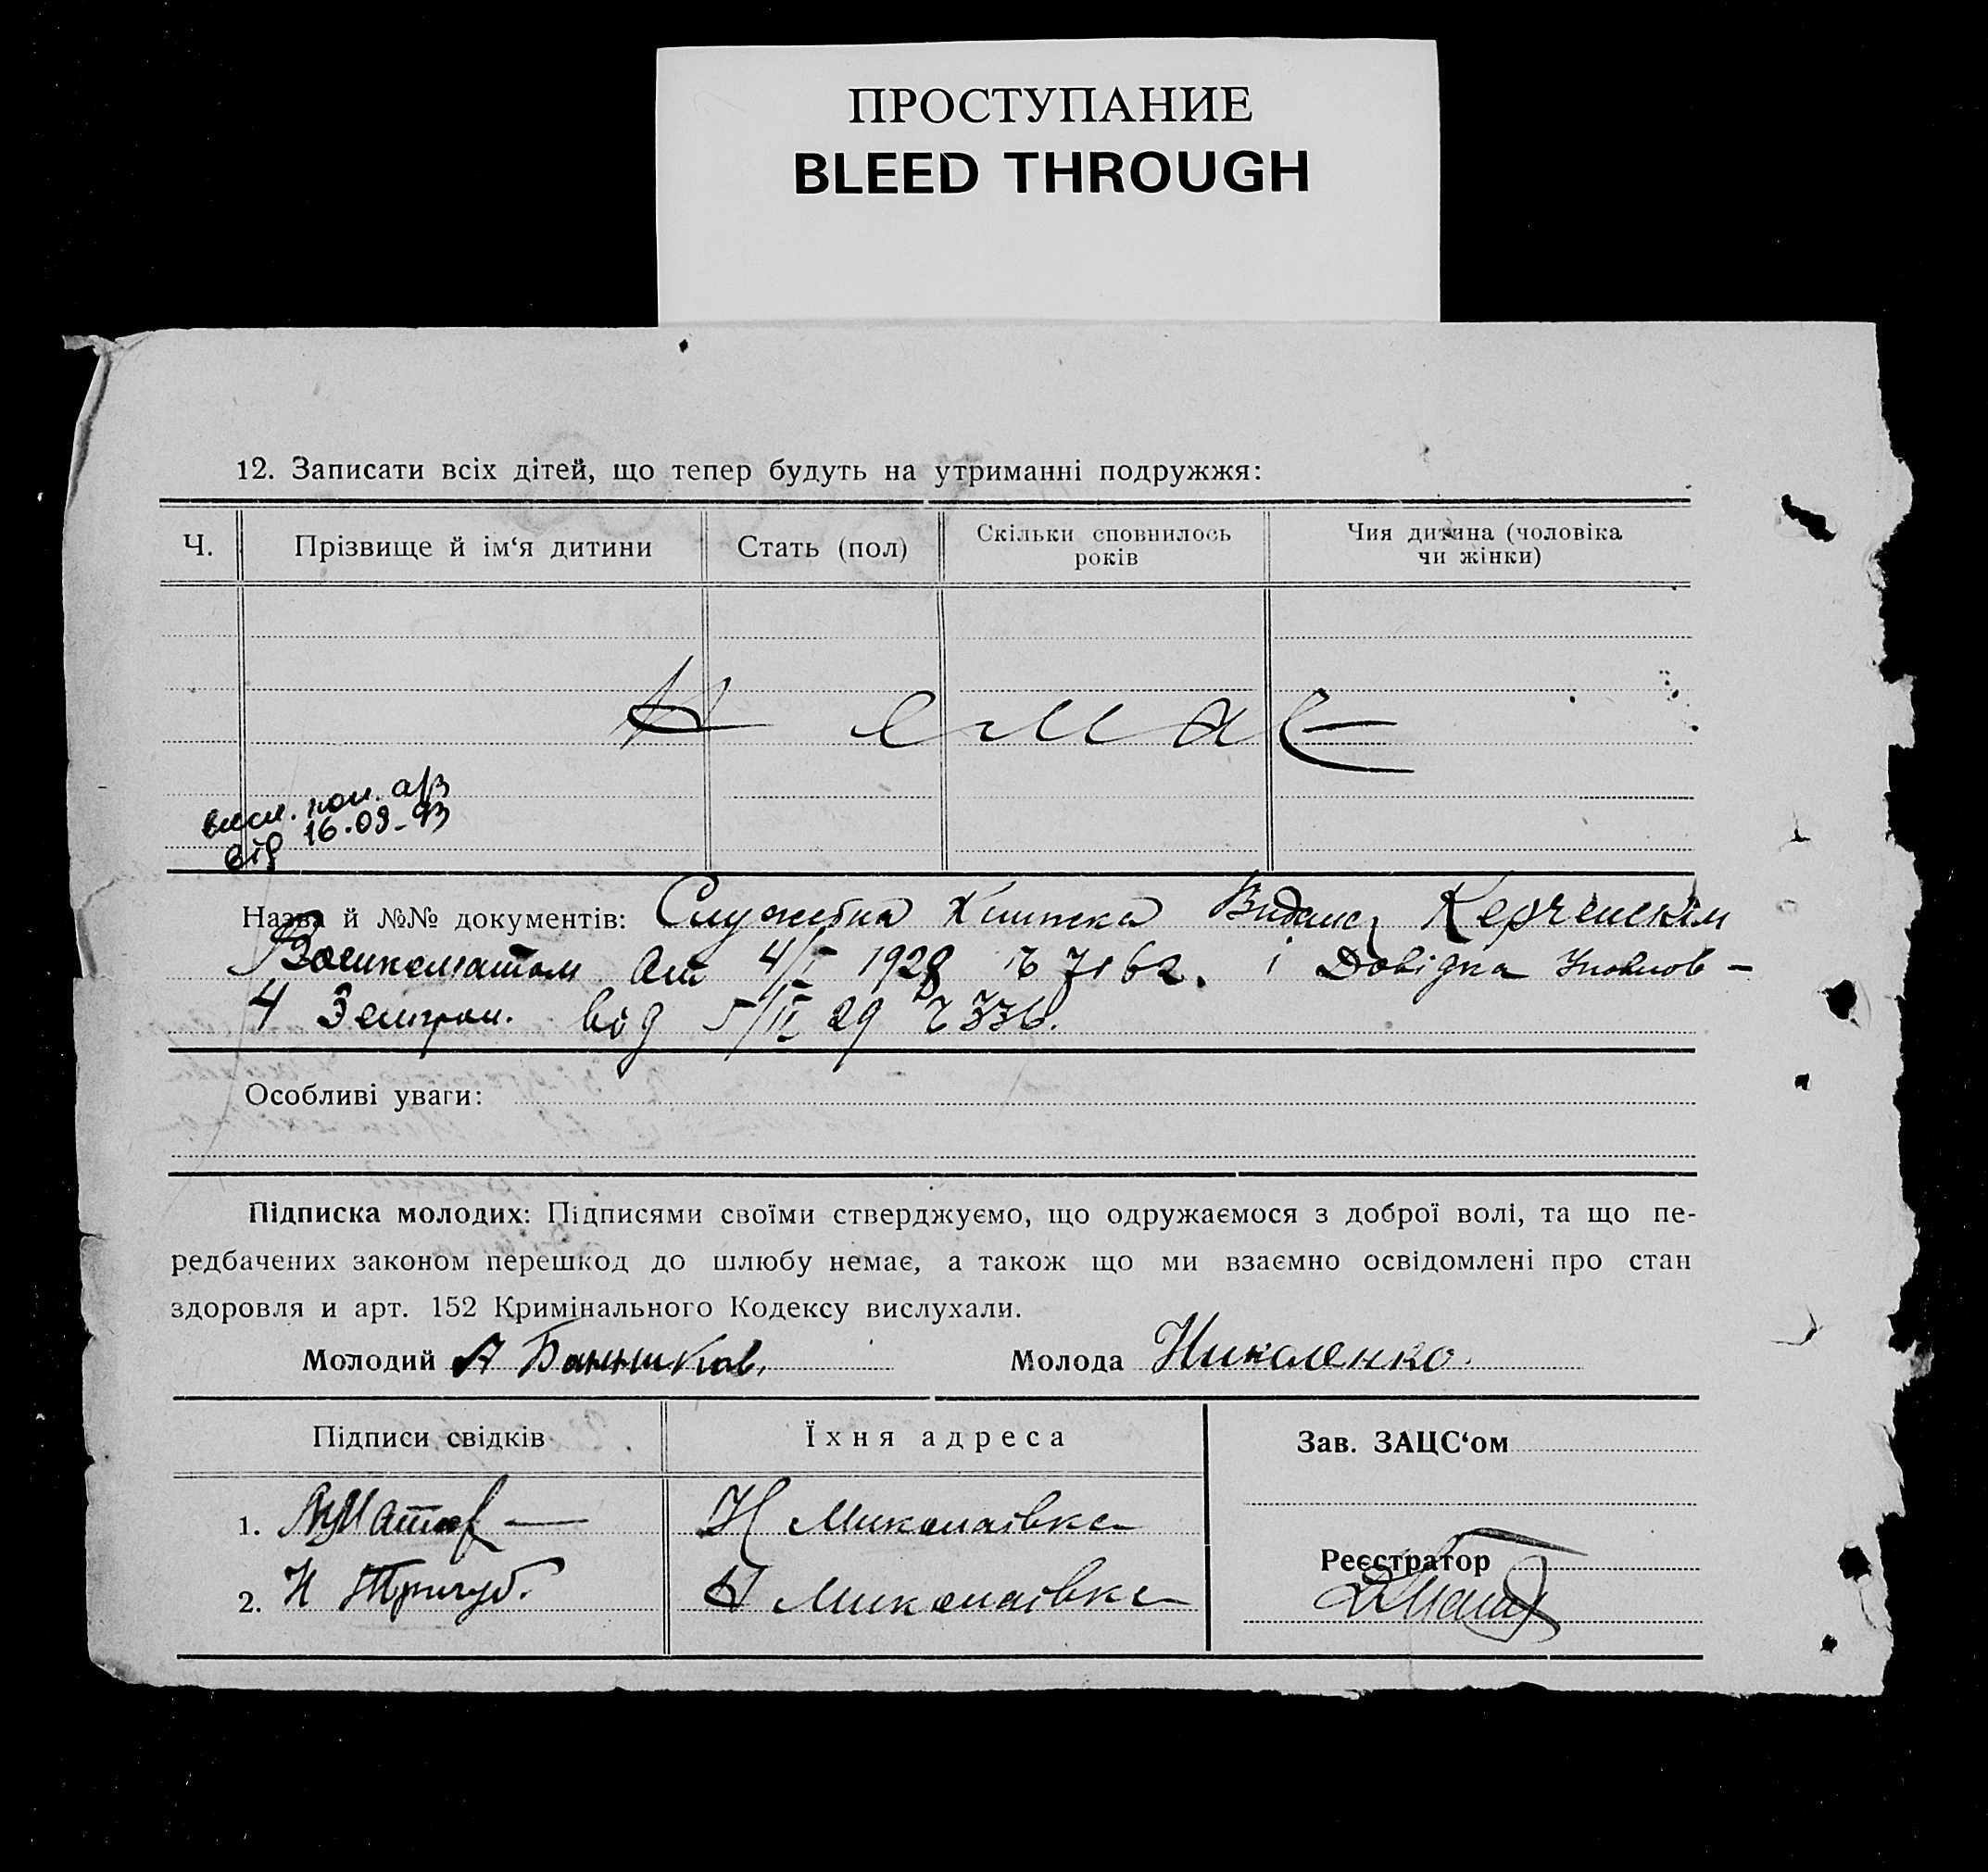 ПРОСТУПАНИЕ
BLEED THROUGH
12. Записати всіх дітей, що тепер будуть на утриманні подружжя:
Ч. Прізвище й ім‘я дитини Стать (пол) Скільки сповнилось років Чия дитина (чоловіка чи жінки)
Немає
від 16.09.93
Назва й №№ документів: Служебна Книжка Видана Керченским
Военкоматом от 4/I 1928 № 7162. і Довідка
4 Земгром. від 5/II 29 336.
Особливі уваги:
Підписка молодих: Підписями своїми стверджуємо, що одружаємося з доброї волі, та що пе-
редбачених законом перешкод до шлюбу немає, а також що ми взаємно освідомлені про стан
здоровля и арт. 152 Кримінального Кодексу вислухали.
Молодий А Банников. Молода Николенко.
Підписи свідків Їхня адреса Зав. ЗАЦС‘ом
1. Н Миколаївка
Реєстратор
2. Н Тригуб. Н Миколаївка